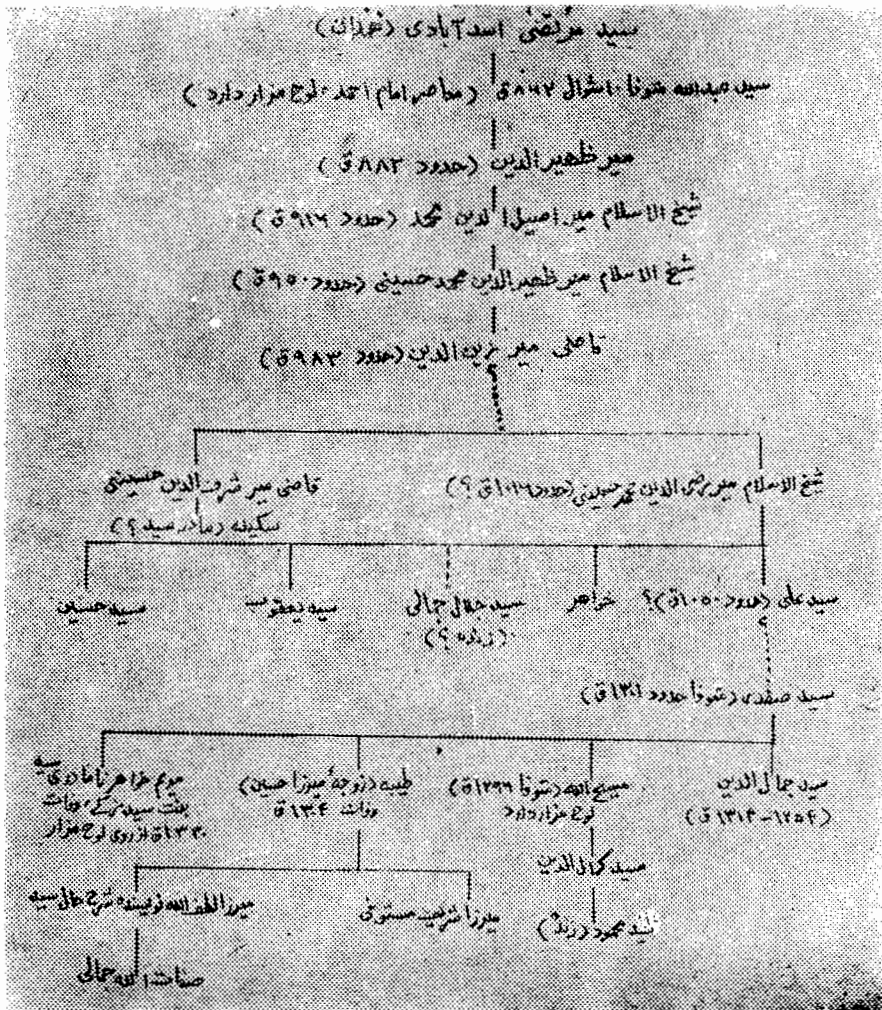 سید مرتضی اسدآبادی (همدان)
سید عبدالله متوفا ۱۰ شوال ۸۶۲ق (معاصر امام احمد لوح مزار دارد)
میر ظهیرالدین (حدود ۸۸۲ ق)
شیخ الاسلام میر اصیل الدین محمد (حدود ۹۱۶ ق)
شیخ الاسلام میر ظهیرالدین محمد حسینی (حدود ۹۵۰ق)
قاضی میر زین الدین (حدود ۹۸۳ق)
؟
شیخ الاسلام میر رضی الدین محمد حسینی (حدود ۱۰۱۶ق ؟)
قاضی میر شرف الدین حسینی
سکینه (مادر سید ؟)
سید علی (حدود ۱۰۵۰ق)؟
خواهر
سید جلال جمالی
(زنده ؟)
سید یعقوب
سید حسین
؟
سید صفدی (متوفا حدود ۱۳۰۱ق)
سید جمال الدین
(۱۲۵۴-۱۳۱۴ ق)
مسیح الله (متوفا ۱۲۹۶ق)
لوح مزار دارد
طیبه (زوجهٔ میرزا حسین)
وفات ۱۳۰۴ ق
مریم خواهر نامادری سید
بنت سیده وفات
۱۳۳۰ق از روی لوح مزار
سید کمال الدین
سید محمود (زنده)
میرزا شریف مستوفی
میرزا لطف الله نویسنده شرح حال سید
صفات الله جمالی